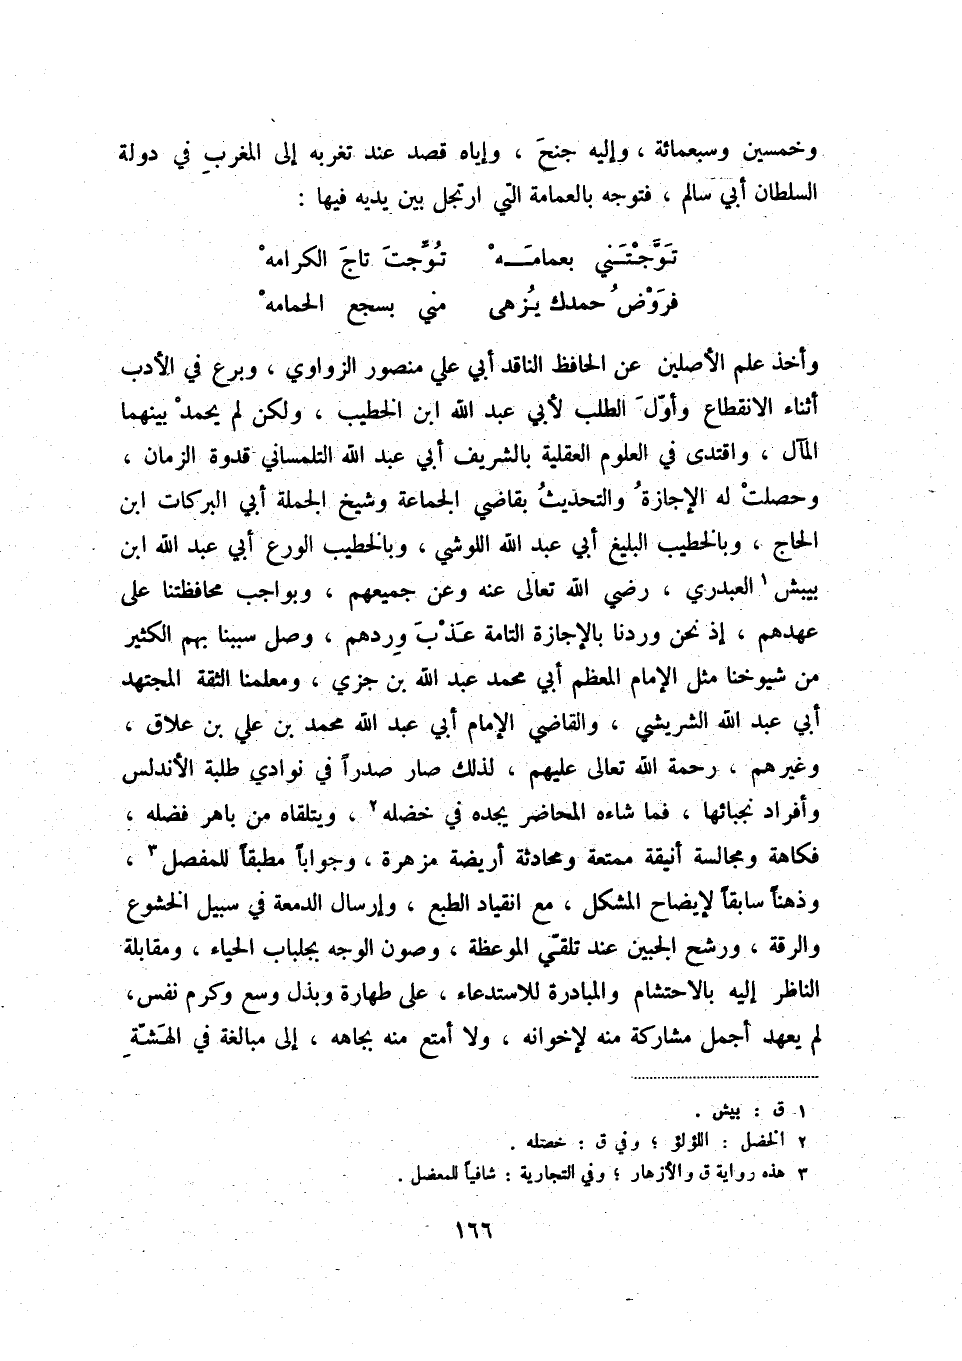 وخمسين وسبعمائة ، وإليه جنحَ ، وإياه قصد عند تغربه إلى المغربِ في دولة
السلطان أبي سالم ، فتوجه بالعمامة التي ارتجل بين يديه فيها :
تَوَّجْتَني بعمامَـهْ تُوِّجتَ تاجَ الكرامهْ
فرَوْضُ حمدك يُزهى مني بسجع الحمامهْ
وأخذ علم الأصلين عن الحافظ الناقد أبي علي منصور الزواوي ، وبرع في الأدب
أثناء الانقطاع وأوّلَ الطلب لأبي عبد الله ابن الخطيب ، ولكن لم يحمدْ بينهما
المآل ، واقتدى في العلوم العقلية بالشريف أبي عبد الله التلمساني قدوة الزمان ،
وحصلتْ له الإجازةُ والتحديثُ بقاضي الجماعة وشيخ الجملة أبي البركات ابن
الحاج ، وبالخطيب البليغ أبي عبد الله اللوشي ، وبالخطيب الورع أبي عبد الله ابن
بيبش١ العبدري ، رضي الله تعالى عنه وعن جميعهم ، وبواجب محافظتنا على
عهدهم ، إذ نحن وردنا بالإجازة التامة عَذْبَ وِردهم ، وصل سببنا بهم الكثير
من شيوخنا مثل الإمام المعظم أبي محمد عبد الله بن جزي ، ومعلمنا الثقة المجتهد
أبي عبد الله الشريشي ، والقاضي الإمام أبي عبد الله محمد بن علي بن علاق ،
وغيرهم ، رحمة الله تعالى عليهم ، لذلك صار صدراً في نوادي طلبة الأندلس
وأفراد نجبائها ، فما شاءه المحاضر يجده في خضله٢ ، ويتلقاه من باهر فضله ،
فكاهة ومجالسة أنيقة ممتعة ومحادثة أريضة مزهرة ، وجواباً مطبقاً للمفصل٣ ،
وذهناً سابقاً لإيضاح المشكل ، مع انقياد الطبع ، وإرسال الدمعة في سبيل الخشوع
والرقة ، ورشح الجبين عند تلقّي الموعظة ، وصون الوجه بجلباب الحياء ، ومقابلة
الناظر إليه بالاحتشام والمبادرة للاستدعاء ، على طهارة وبذل وسع وكرم نفس،
لم يعهد أجمل مشاركة منه لإخوانه ، ولا أمتع منه بجاهه ، إلى مبالغة في الهَشّةِ
١ ق : بيش .
٢ الخضل : اللؤلؤ ؛ وفي ق : خصله .
٣ هذه رواية ق والأزهار ؛ وفي التجارية : شافياً للمعضل .
١٦٦